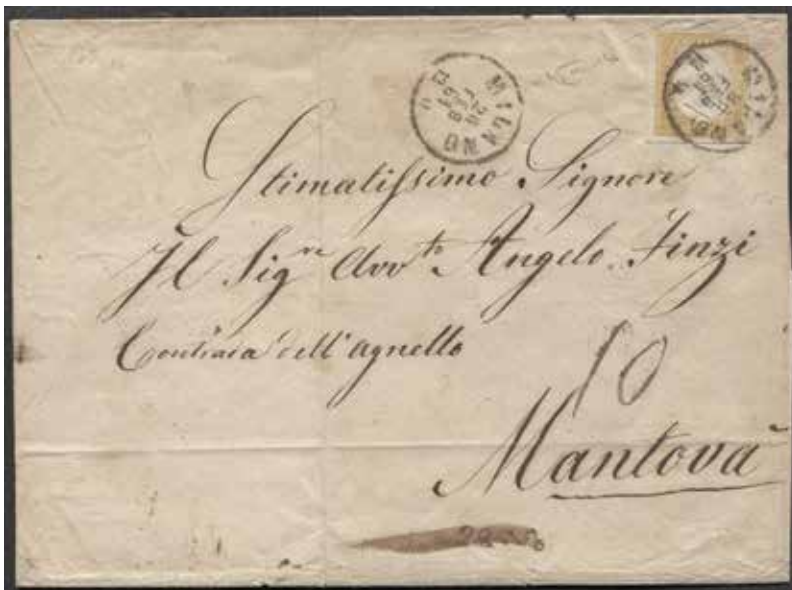 MILANO
28
FEB
61
MILANO
Stimatissimo Signore
Il Sig.re Avv.to Angelo Finzi
Contrada dell'Agnello
10
Mantova